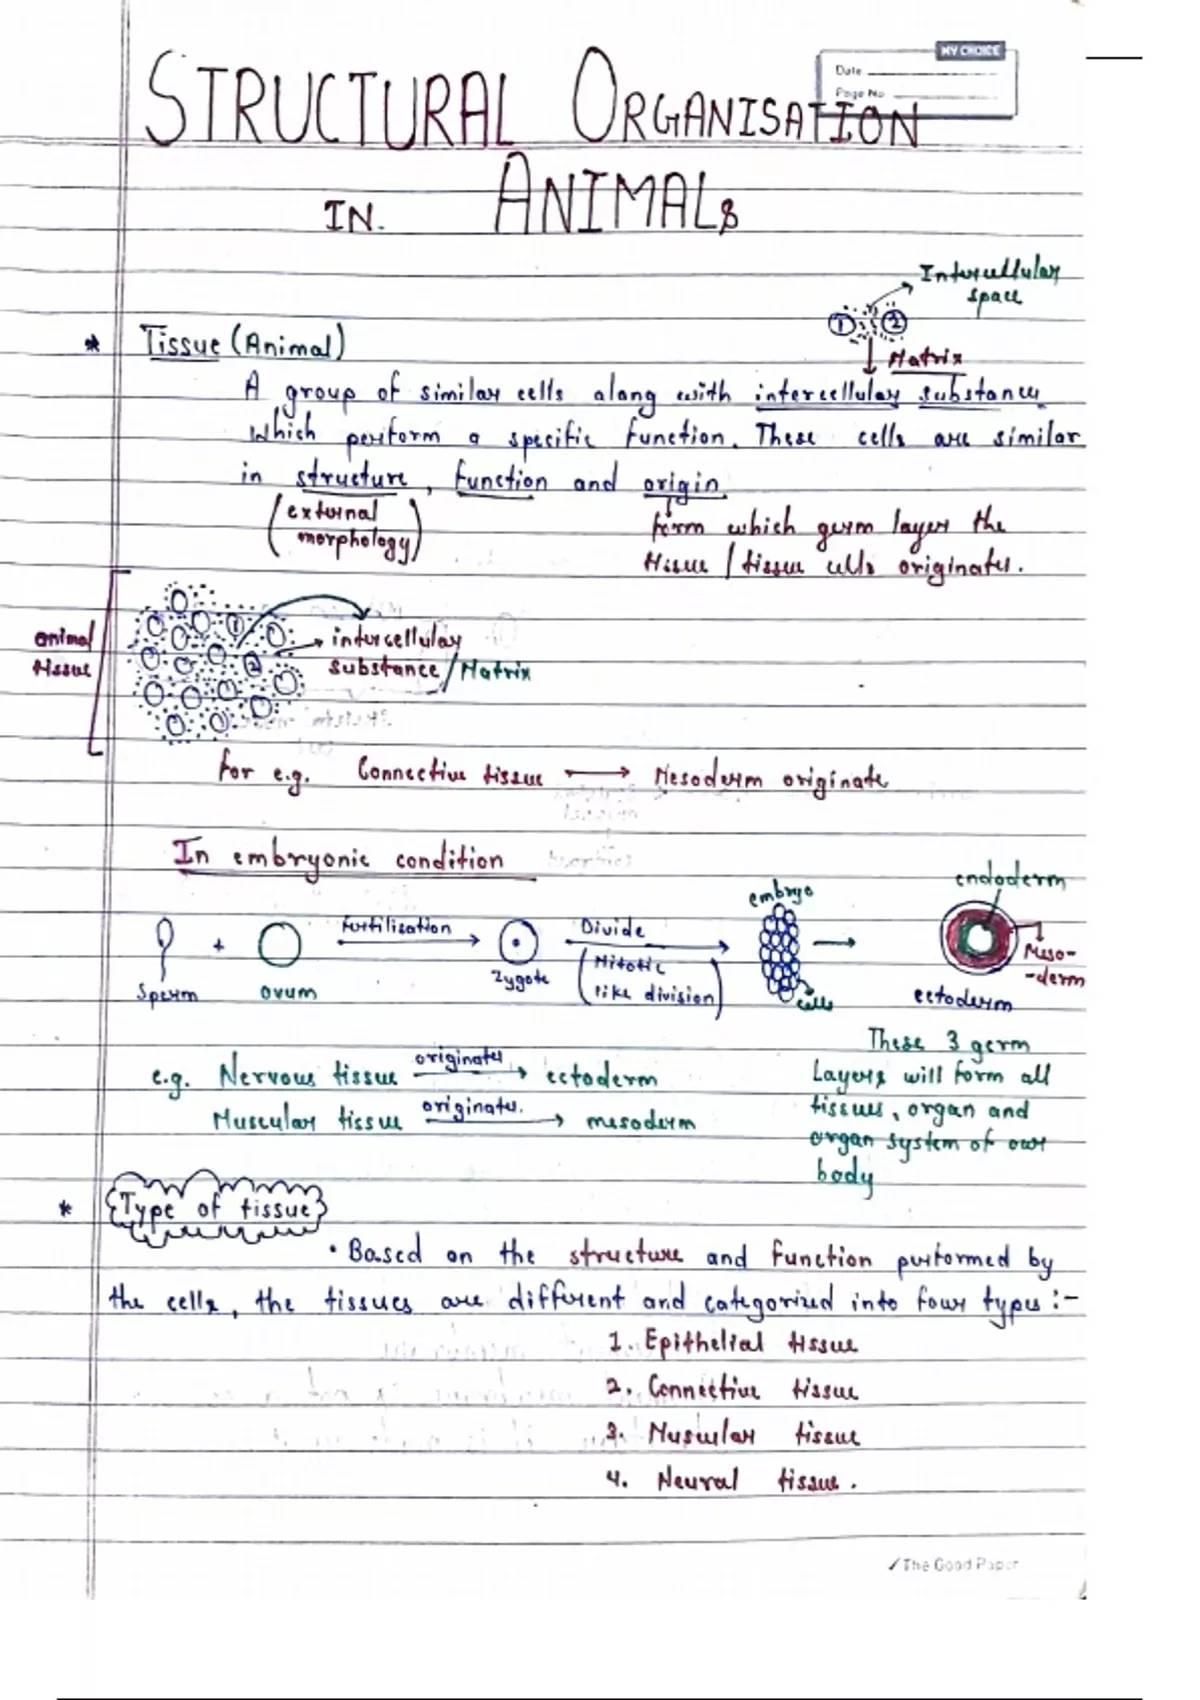 MY CHOICE
Date
Page No
STRUCTURAL ORGANISATION
IN. ANIMALS
Intercellular
space
1 2
Matrix
* Tissue (Animal)
A group of similar cells along with intercellular substance
which perform a specific function. These cells are similar
in structure, function and origin.
(external
morphology)
form which germ layer the
tissue / tissue cells originates.
animal
tissue
1
2
intercellular
substance / Matrix
for e.g. Connective tissue → Mesoderm originate
In embryonic condition
endoderm
embryo
+ fertilisation → Divide → →
(Mitotic
like division)
Meso-
-derm
Sperm ovum Zygote cells ectoderm
These 3 germ
Layers will form all
tissues, organ and
organ system of our
body
e.g. Nervous tissue originates → ectoderm
Muscular tissue originates. → mesoderm
* Type of tissue
• Based on the structure and function performed by
the cells, the tissues are different and categorized into four types :-
1. Epithelial tissue
2. Connective tissue
3. Muscular tissue
4. Neural tissue.
The Good Paper